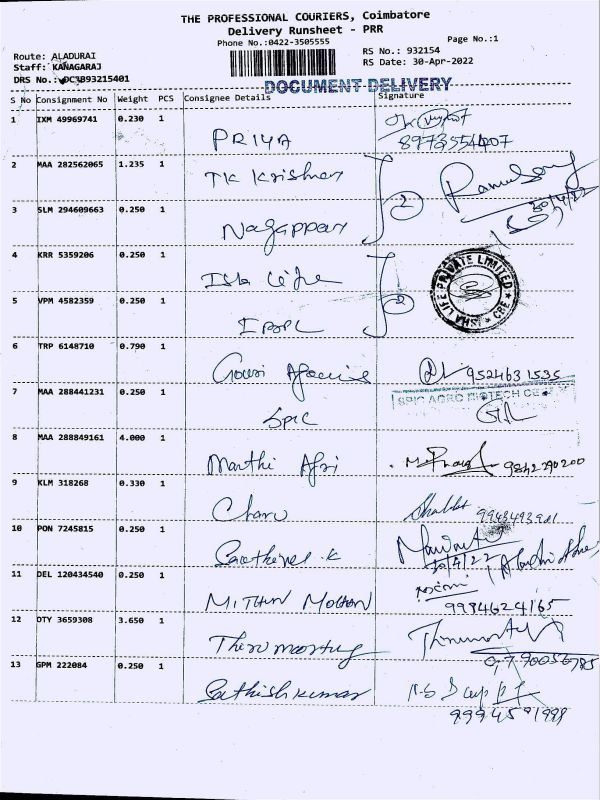 THE PROFESSIONAL COURIERS, Coimbatore
Delivery Runsheet - PRR
Phone No.:0422-3505555
Page No.:1
Route: ALADURAI
Staff: KANAGARAJ
DRS No.: DC3893215401
RS No.: 932154
RS Date: 30-Apr-2022
DOCUMENT DELIVERY
S No Consignment No Weight PCS Consignee Details Signature
1 IXM 49969741 0.230 1
PRIYA
2 MAA 282562065 1.235 1
TK Krishnan
2
30/4/22
3 SLM 294609663 0.250 1
Nagappan
4 KRR 5359206 0.250 1
Isha Life
2
ISHA LIFE PRIVATE LIMITED
CBE
5 VPM 4582359 0.250 1
6 TRP 6148710 0.790 1
Gowri
9524631535
7 MAA 288441231 0.250 1
SPIC AGRO BIOTECH CE
Spic
8 MAA 288849161 4.000 1
Maruthi Agri
9842290200
9 KLM 318268 0.330 1
Charu
10 PON 7245815 0.250 1
30/4/22
11 DEL 120434540 0.250 1
MITHUN MOHAN
9994624165
12 OTY 3659308 3.650 1
Thirumoorthy
13 GPM 222084 0.250 1
Sathishkumar
9994591998